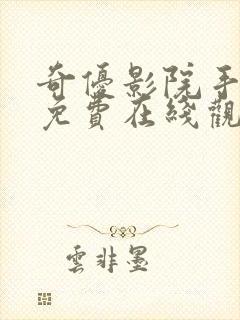 奇優影院手
免費在綫觀
雲非墨